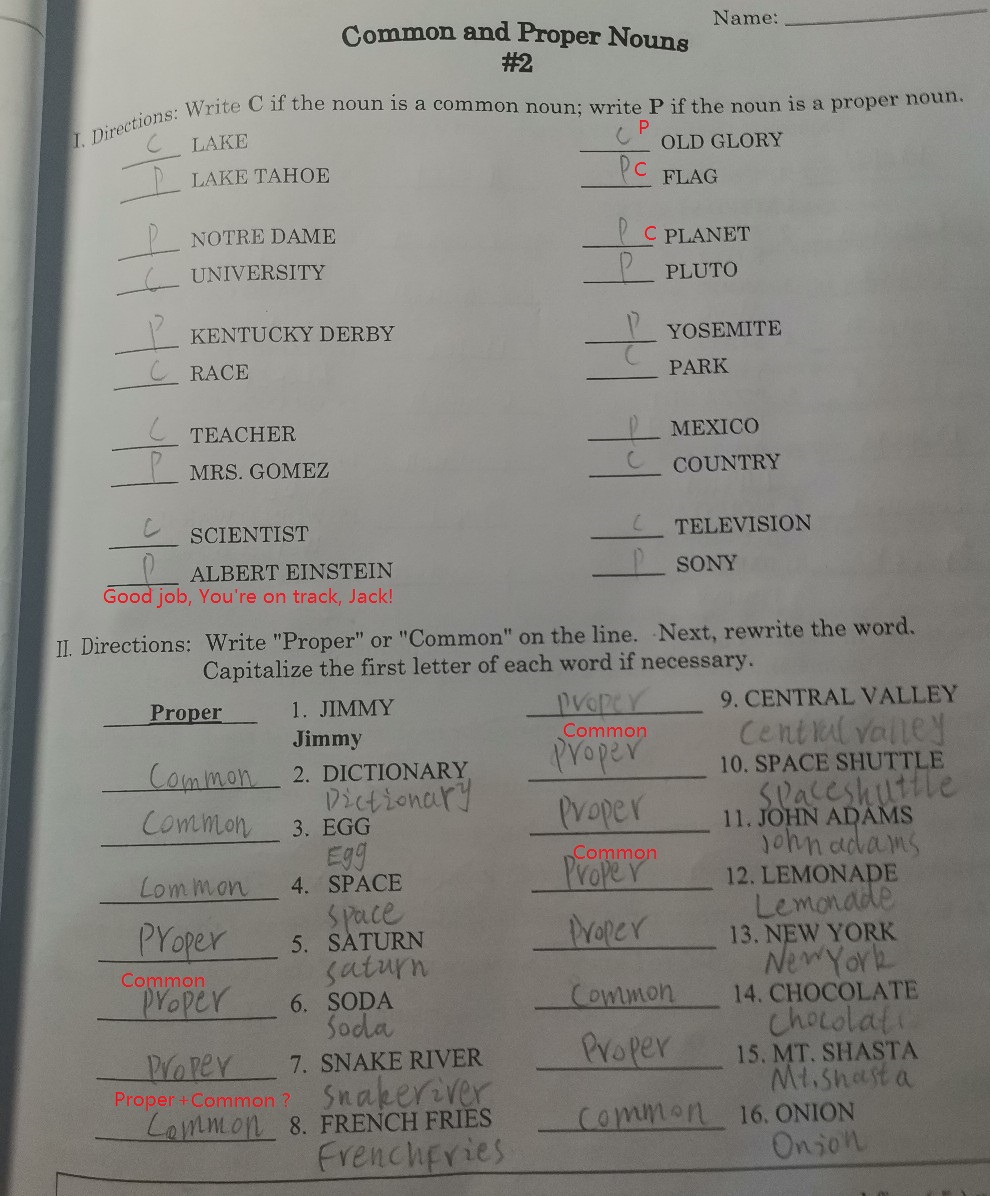 Name:
Common and Proper Nouns
#2
I. Directions: Write C if the noun is a common noun; write P if the noun is a proper noun.
C LAKE
P LAKE TAHOE
P NOTRE DAME
C UNIVERSITY
P KENTUCKY DERBY
C RACE
C TEACHER
P MRS. GOMEZ
C SCIENTIST
P ALBERT EINSTEIN
Good job, You're on track, Jack!
C P OLD GLORY
P C FLAG
P C PLANET
P PLUTO
P YOSEMITE
C PARK
P MEXICO
C COUNTRY
C TELEVISION
P SONY
II. Directions: Write "Proper" or "Common" on the line. Next, rewrite the word.
Capitalize the first letter of each word if necessary.
Proper 1. JIMMY
Jimmy
Common 2. DICTIONARY
Dictionary
Common 3. EGG
Egg
Common 4. SPACE
Space
Proper 5. SATURN
saturn
Common
Proper 6. SODA
Soda
Proper 7. SNAKE RIVER
snakeriver
Proper+Common ?
Common 8. FRENCH FRIES
Frenchfries
Proper 9. CENTRAL VALLEY
Central valley
Common
Proper 10. SPACE SHUTTLE
spaceshuttle
Proper 11. JOHN ADAMS
John adams
Common
Proper 12. LEMONADE
Lemonade
Proper 13. NEW YORK
NewYork
Common 14. CHOCOLATE
Proper 15. MT. SHASTA
Mt.shasta
Common 16. ONION
Onion